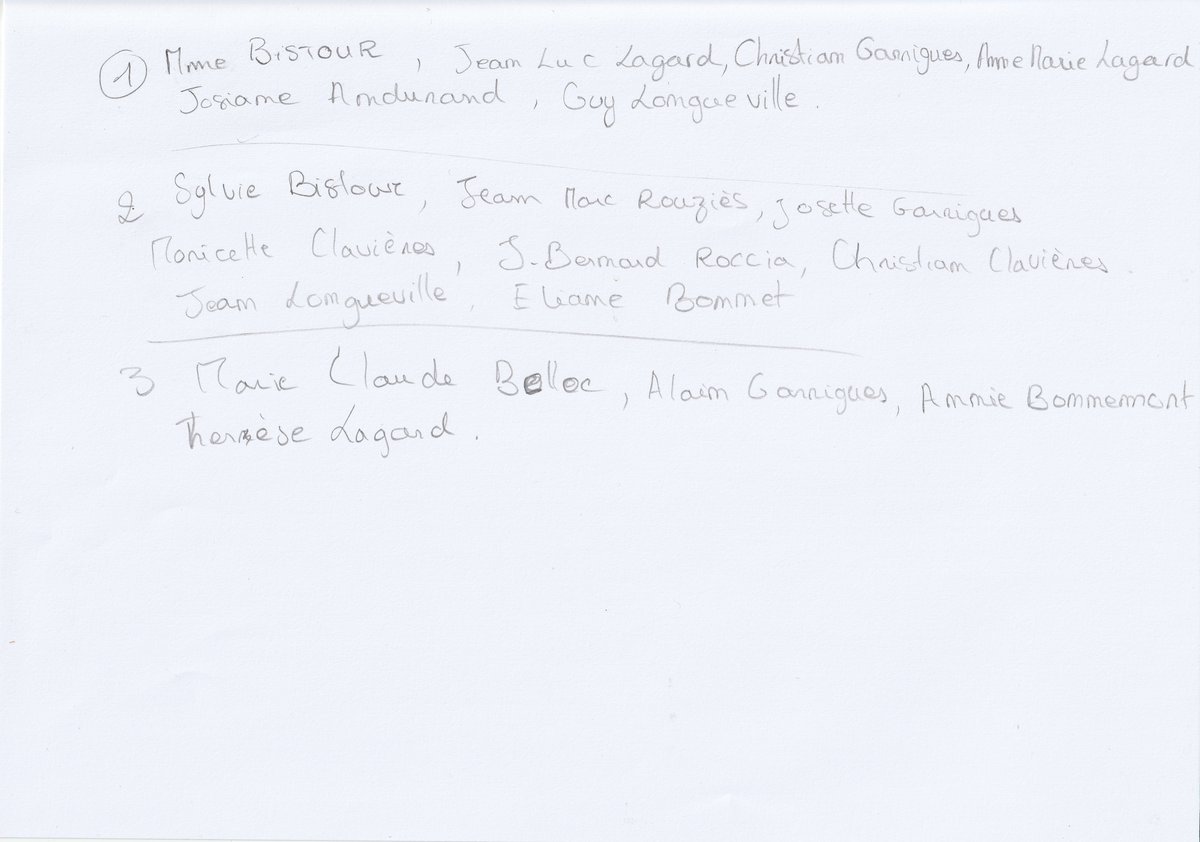 ① Mme BISTOUR, Jean Luc Lagard, Christian Garrigues, Anne Marie Lagard
Josiane Andurand, Guy Longueville.
2 Sylvie Bistour, Jean Marc Rouziès, Josette Garrigues
Monicette Clavières, J. Bernard Roccia, Christian Clavières.
Jean Longueville, Eliane Bonnet
3 Marie Claude Belloc, Alain Garrigues, Annie Bonnemont
Therèse Lagard.